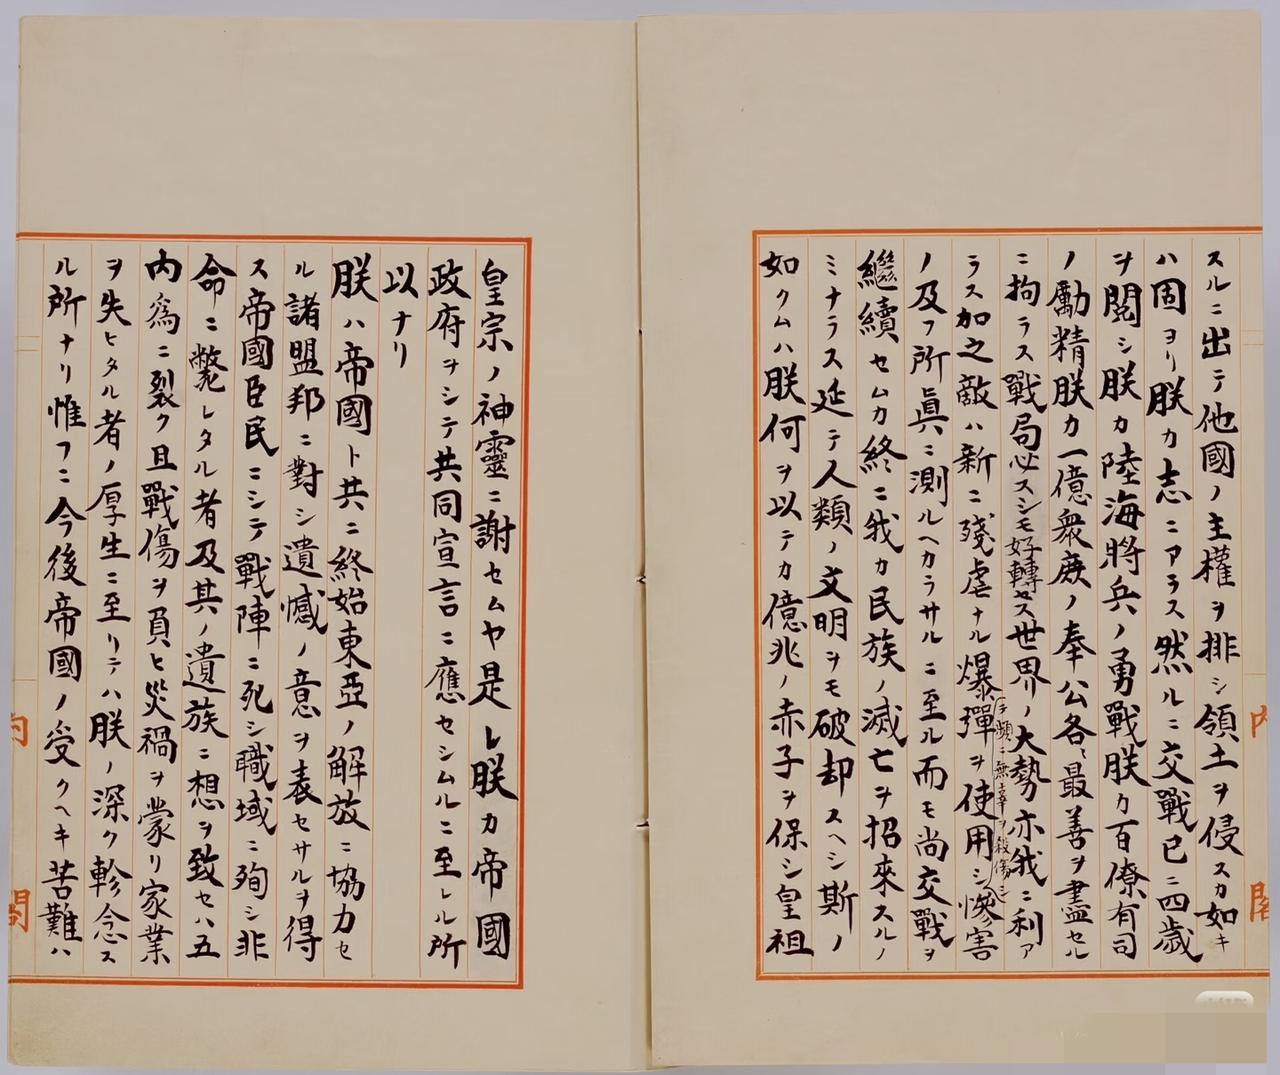 スルニ出テ他國ノ主權ヲ排シ領土ヲ侵スカ如キ
ハ固ヨリ朕カ志ニアラス然ルニ交戰已ニ四歲
ヲ閱シ朕カ陸海將兵ノ勇戰朕カ百僚有司
ノ勵精朕カ一億衆庶ノ奉公各〻最善ヲ盡セル
ニ拘ラス戰局必スシモ好轉セス世界ノ大勢亦我ニ利ア
ラス加之敵ハ新ニ殘虐ナル爆彈ヲ使用シ慘害
テ頻ニ無辜ヲ殺傷シ
ノ及フ所眞ニ測ルヘカラサルニ至ル而モ尚交戰ヲ
繼續セムカ終ニ我カ民族ノ滅亡ヲ招來スルノ
ミナラス延テ人類ノ文明ヲモ破却スヘシ斯ノ
如クムハ朕何ヲ以テカ億兆ノ赤子ヲ保シ皇祖
皇宗ノ神靈ニ謝セムヤ是レ朕カ帝國
政府ヲシテ共同宣言ニ應セシムルニ至レル所
以ナリ
朕ハ帝國ト共ニ終始東亞ノ解放ニ協力セ
ル諸盟邦ニ對シ遺憾ノ意ヲ表セサルヲ得
ス帝國臣民ニシテ戰陣ニ死シ職域ニ殉シ非
命ニ斃レタル者及其ノ遺族ニ想ヲ致セハ五
內爲ニ裂ク且戰傷ヲ負ヒ災禍ヲ蒙リ家業
ヲ失ヒタル者ノ厚生ニ至リテハ朕ノ深ク軫念ス
ル所ナリ惟フニ今後帝國ノ受クヘキ苦難ハ
内閣
内閣